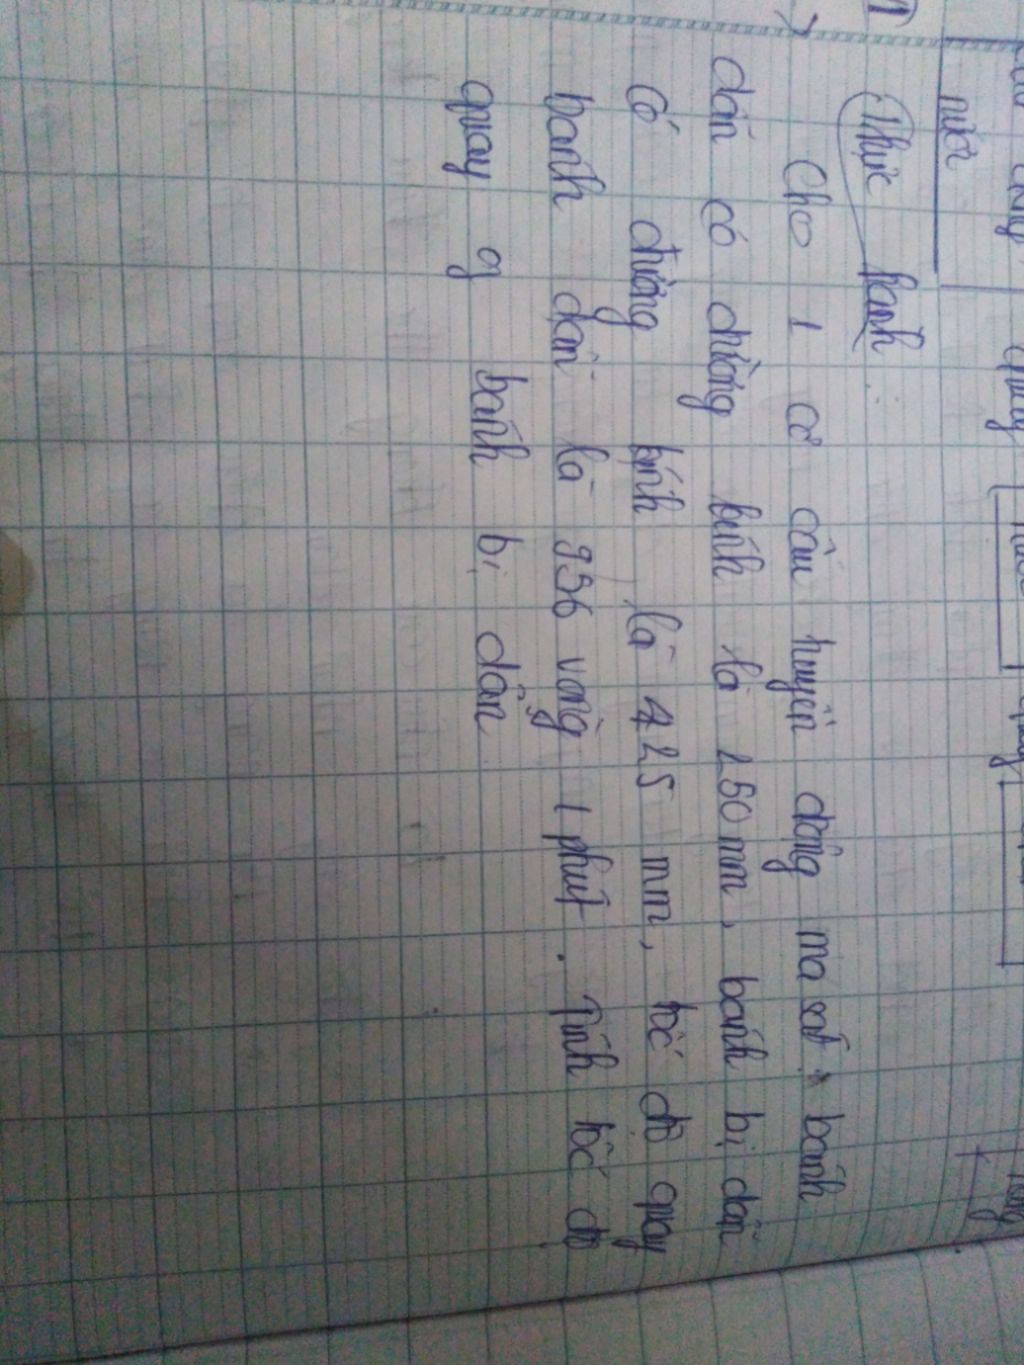 nước
Thực hành:
Cho 1 cơ cấu truyền động ma sát, bánh
dẫn có đường kính là 250 mm, bánh bị dẫn
Có đường kính là 425 mm, tốc độ quay
bánh dẫn là 936 vòng 1 phút. Tính tốc độ
quay g bánh bị dẫn